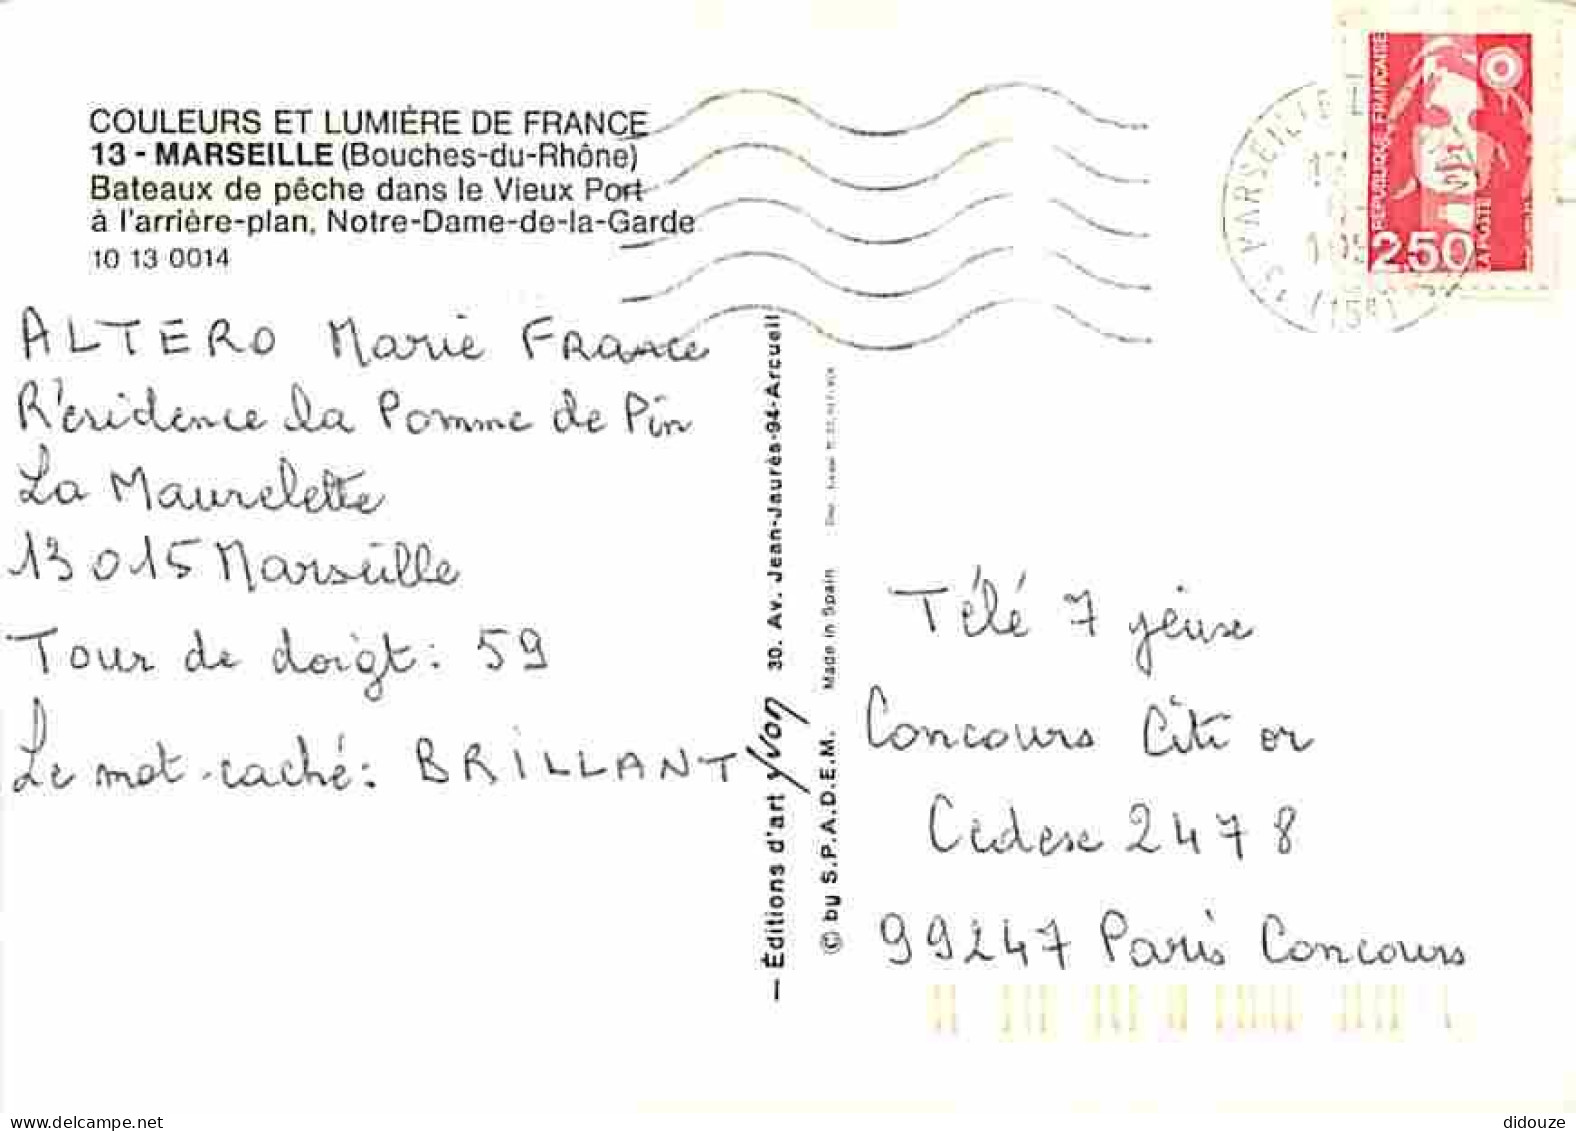 COULEURS ET LUMIÈRE DE FRANCE
13 - MARSEILLE (Bouches-du-Rhône)
Bateaux de pêche dans le Vieux Port
à l'arrière-plan, Notre-Dame-de-la-Garde
10 13 0014
RÉPUBLIQUE FRANÇAISE
2.50
LA POSTE
MARSEILLE
ALTERO Marie France
Résidence la Pomme de Pin
La Maurelette
13015 Marseille
Tour de doigt : 59
Le mot-caché : BRILLANT
— Éditions d'art YVON 30. Av. Jean-Jaurès-94-Arcueil
© by S.P.A.D.E.M. Made in Spain
Télé 7 jeux
Concours Citi or
Cedex 2478
99247 Paris Concours
www.delcampe.net
didouze